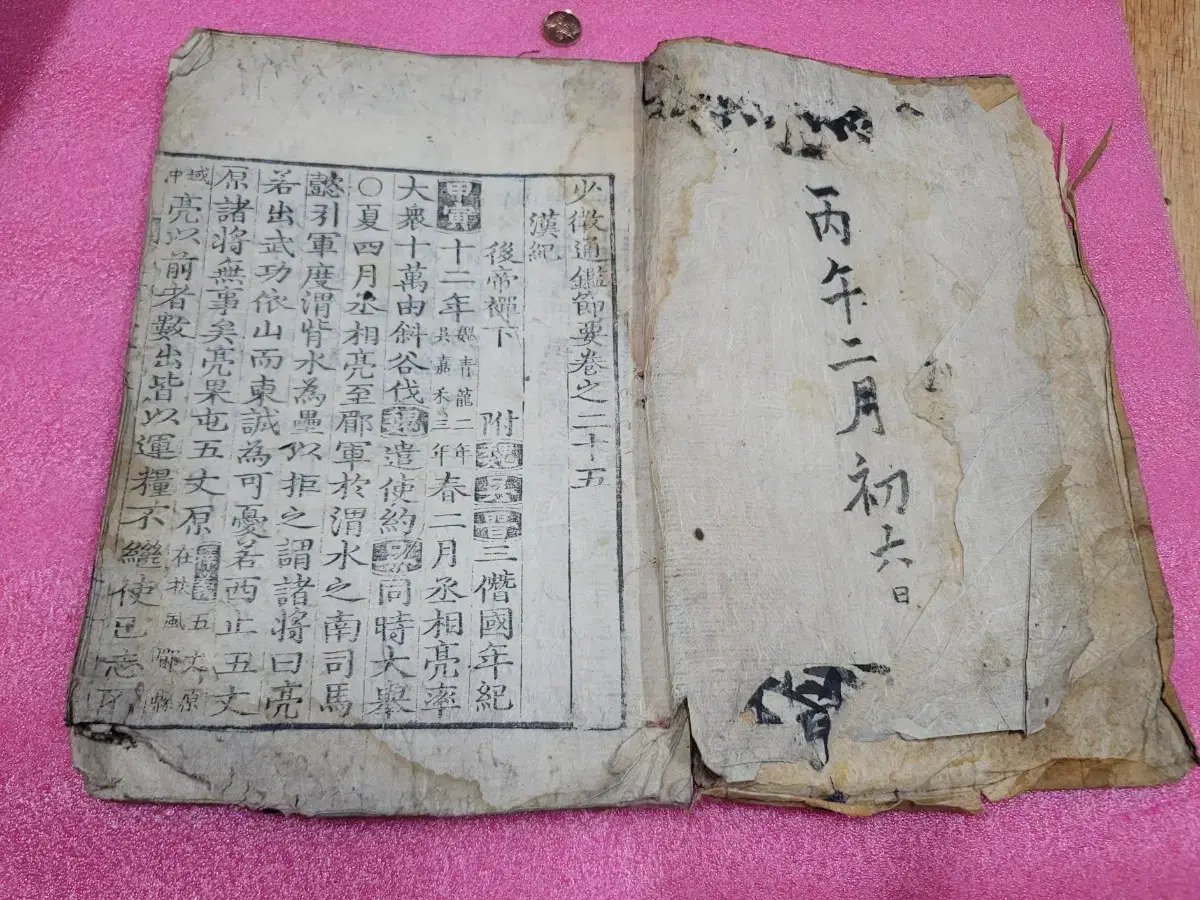 丙午二月初六日
少微通鑑節要卷之二十五
漢紀
後帝禪下 附魏吳晉三僭國年紀
甲寅十二年魏青龍二年吳嘉禾三年春二月丞相亮率
大衆十萬由斜谷伐魏遣使約吳同時大舉
○夏四月丞相亮至郿軍於渭水之南司馬
懿引軍度渭背水為壘以拒之謂諸將曰亮
若出武功依山而東誠為可憂若西止五丈
原諸將無事矣亮果屯五丈原五丈原在扶風郿縣
域中亮以前者數出皆以運糧不繼使已志